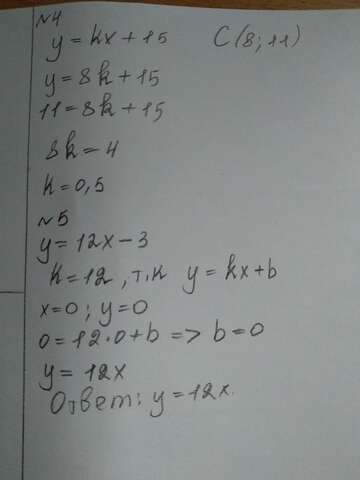 №4
y = kx + 15 C(8; 11)
y = 8k + 15
11 = 8k + 15
8k = 4
k = 0,5
№5
y = 12x - 3
k = 12, т.к y = kx + b
x = 0; y = 0
0 = 12 · 0 + b => b = 0
y = 12x
Ответ: y = 12x.